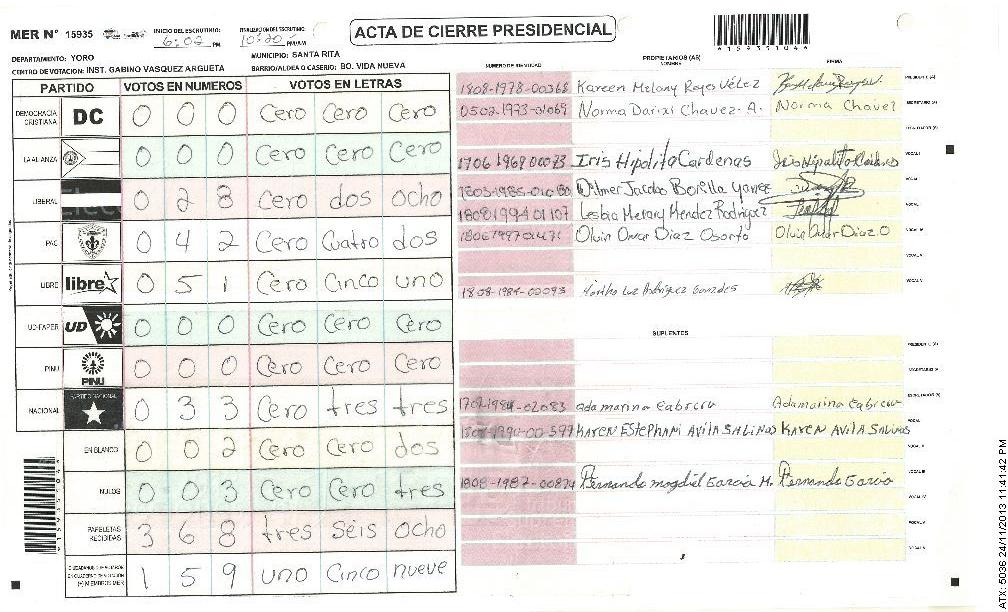 MER N° 15935
INICIO DEL ESCRUTINIO: 6:02 PM
FINALIZACION DEL ESCRUTINIO: 10:20 PM/AM
ACTA DE CIERRE PRESIDENCIAL
4159351044
DEPARTAMENTO: YORO
MUNICIPIO: SANTA RITA
CENTRO DE VOTACION: INST. GABINO VASQUEZ ARGUETA
BARRIO/ALDEA O CASERIO: BO. VIDA NUEVA
PARTIDO VOTOS EN NUMEROS VOTOS EN LETRAS
DEMOCRACIA CRISTIANA DC 0 0 0 Cero Cero Cero
LA ALIANZA 0 0 0 Cero Cero Cero
LIBERAL 0 2 8 Cero dos ocho
PAC 0 4 2 Cero Cuatro dos
LIBRE libre 0 5 1 Cero Cinco uno
UD-FAPER UD 0 0 0 Cero Cero Cero
PINU PINU 0 0 0 Cero Cero Cero
NACIONAL PARTIDO NACIONAL 0 3 3 Cero tres tres
EN BLANCO 0 0 2 Cero Cero dos
NULOS 0 0 3 Cero Cero tres
PAPELETAS RECIBIDAS 3 6 8 tres seis ocho
CIUDADANOS QUE VOTARON EN CUADERNO DE VOTACION (+) MIEMBROS MER 1 5 9 uno Cinco nueve
NUMERO DE IDENTIDAD
PROPIETARIOS (AS)
NOMBRE
FIRMA
1808-1978-00368 Kareen Melany Reyes Vélez PRESIDENTE (A)
0502-1973-01069 Norma Darixi Chavez. A. Norma Chavez SECRETARIO (A)
ESCRUTADOR (A)
1706 1969 00073 Iris Hipolito Cardenas Iris Hipolito Cardenas VOCAL I
Wilmer Jacobo Bonilla
1808 1994 01107 Lesbia Merary Mendez Rodriguez
Olvin Omar Diaz Osorto Olvin Omar Diaz O
1808-1984-00093 Rodriguez
SUPLENTES
PRESIDENTE (A)
SECRETARIO (A)
1702-1984-02083 Ada marina Cabrera Ada marina Cabrera ESCRUTADOR (A)
KAREN ESTEPHANI AVILA SALINAS KAREN AVILA SALINAS
1808-1982-00874 Fernando magdiel Garcia M. Fernando Garcia
ATX: 5036 24/11/2013 11:41:42 PM